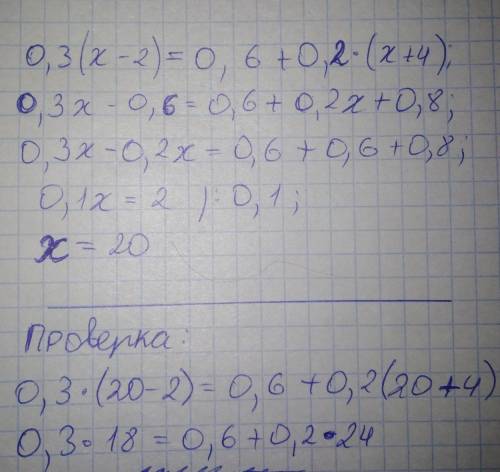 0,3(x-2)=0,6+0,2·(x+4);
0,3x-0,6=0,6+0,2x+0,8;
0,3x-0,2x=0,6+0,6+0,8;
0,1x=2 /:0,1;
x=20
Проверка:
0,3·(20-2)=0,6+0,2(20+4)
0,3·18=0,6+0,2·24